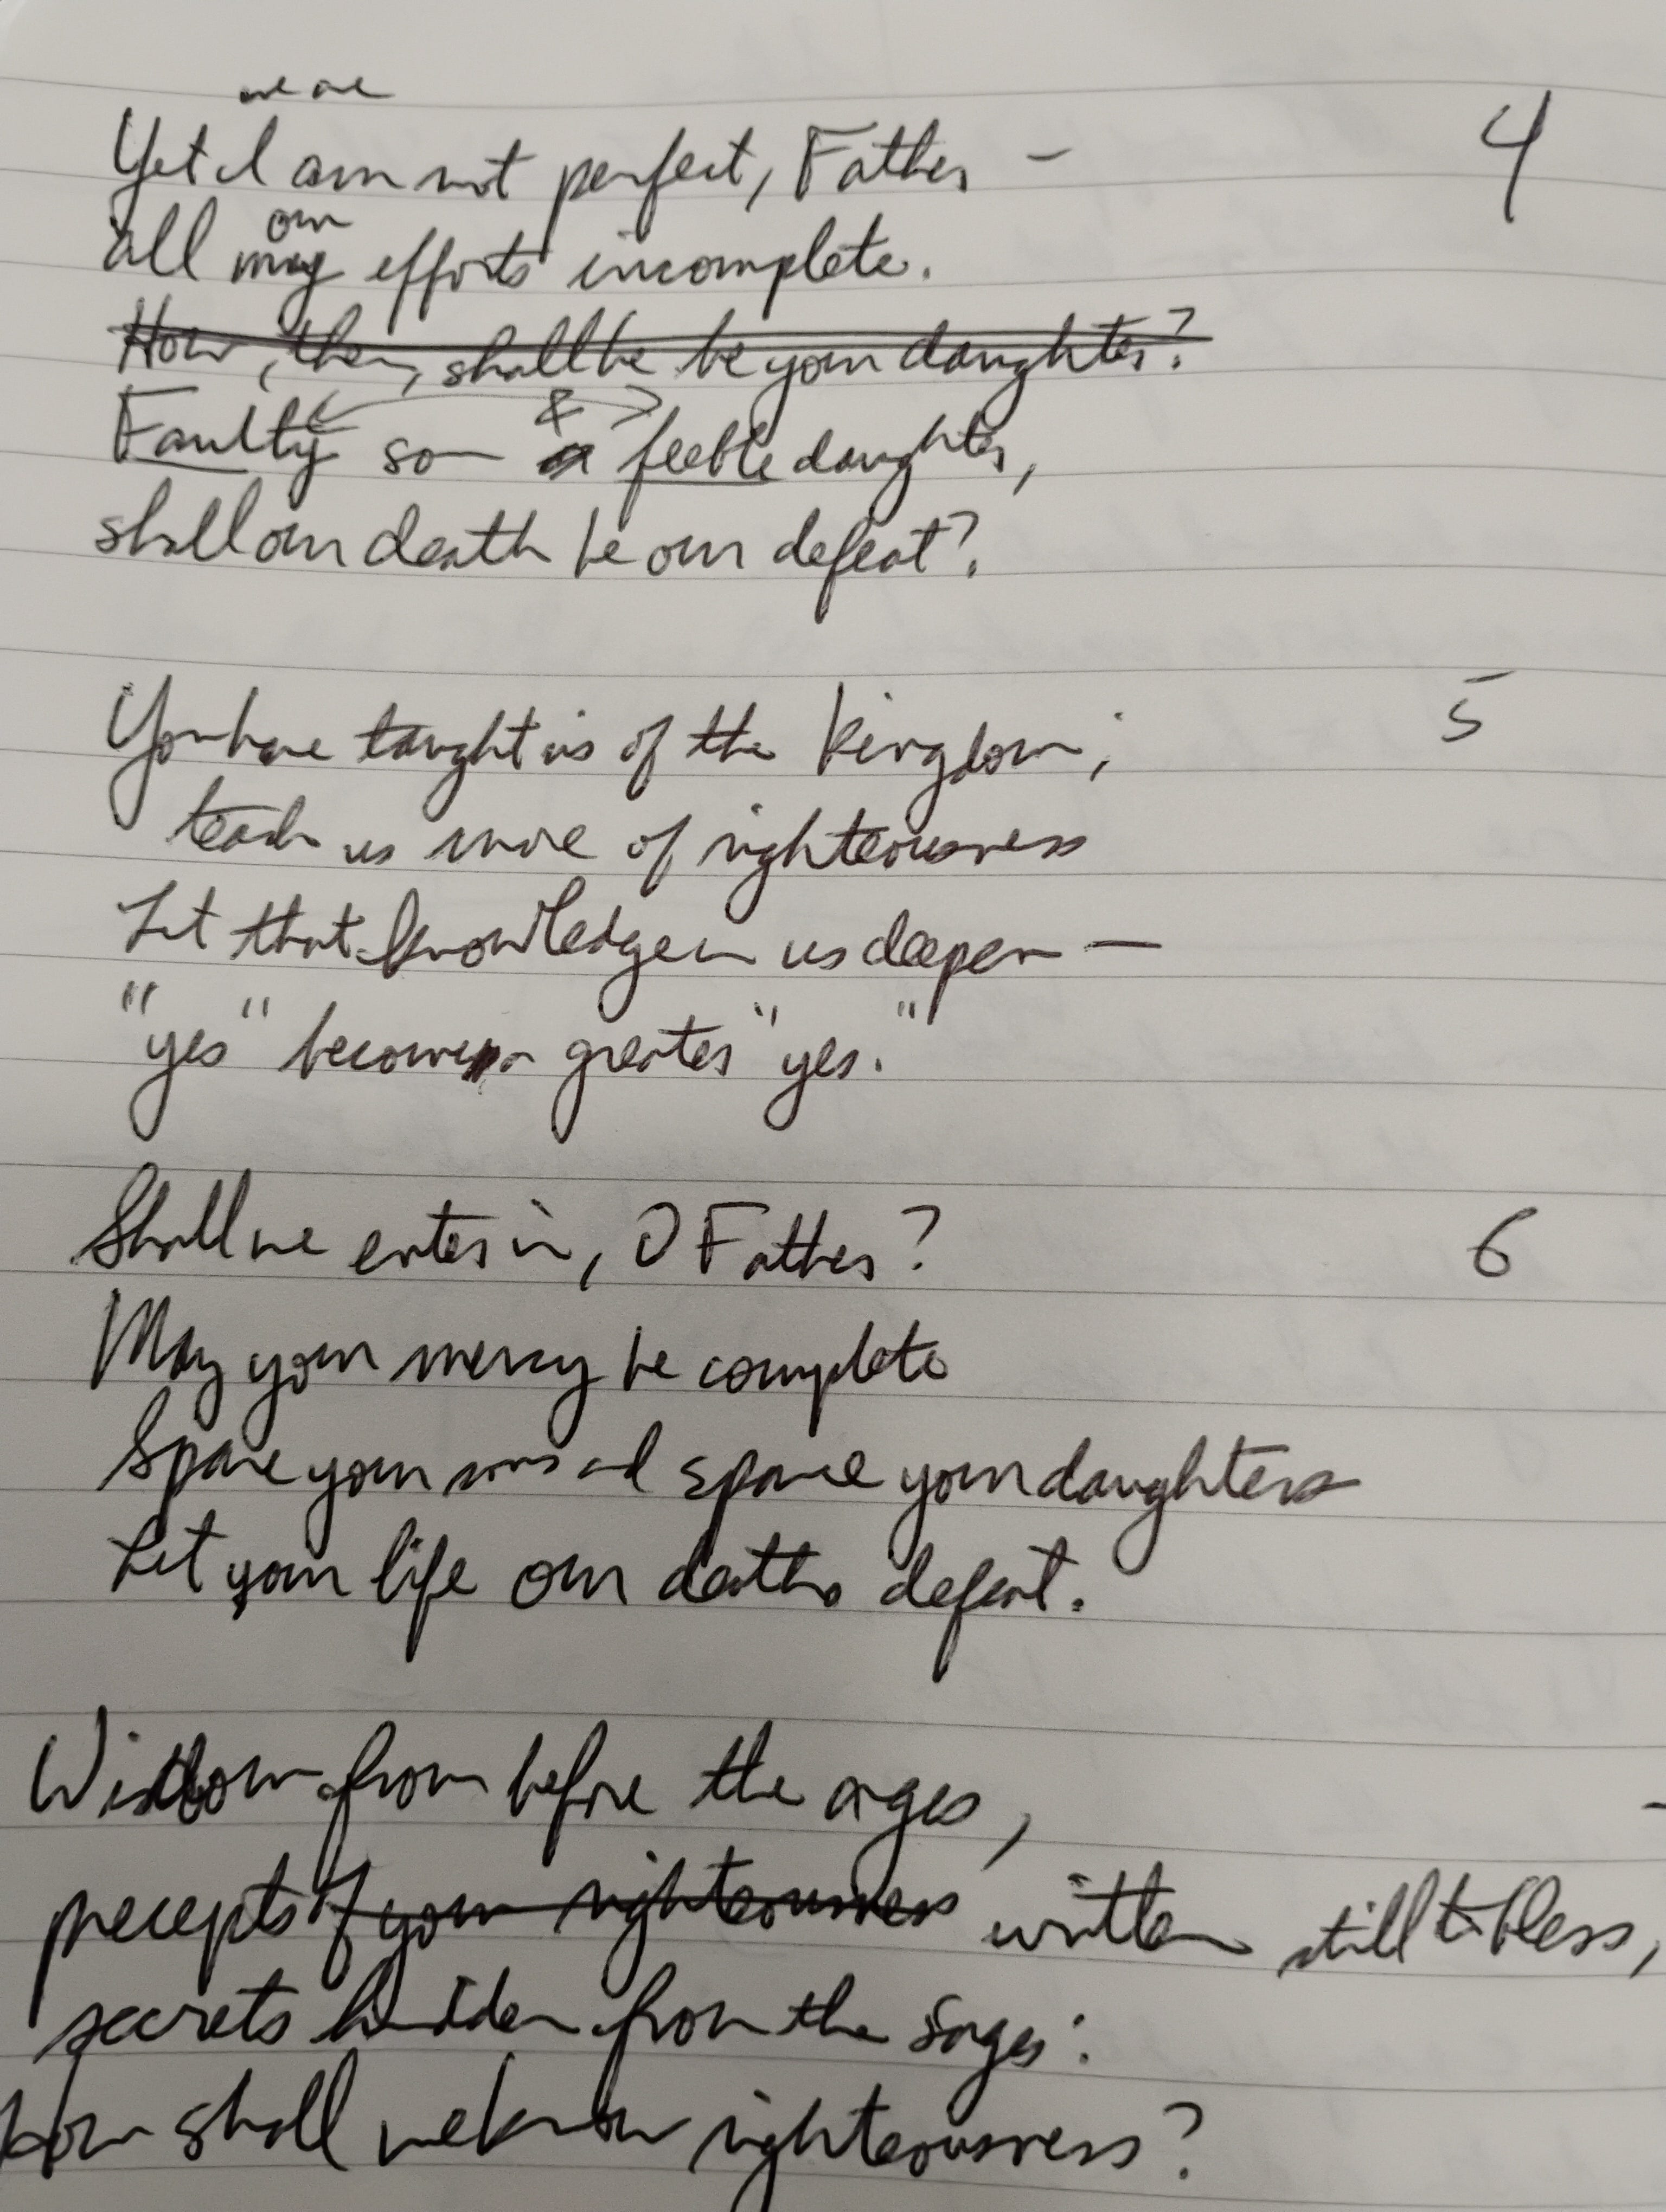 we are
Yet I am not perfect, Father —
4
our
all my efforts incomplete.
How, then, shall he be your daughter?
&
Faulty son a feeble daughter,
shall our death be our defeat?
You have taught us of the kingdom;
5
teach us more of righteousness
Let that knowledge in us deepen —
"yes" becomes a greater "yes."
Shall we enter in, O Father?
6
May your mercy be complete
Spare your sons and spare your daughters
Let your life our deaths defeat.
Wisdom from before the ages,
precepts of your righteousness written still to bless,
secrets hidden from the sages:
how shall we know righteousness?